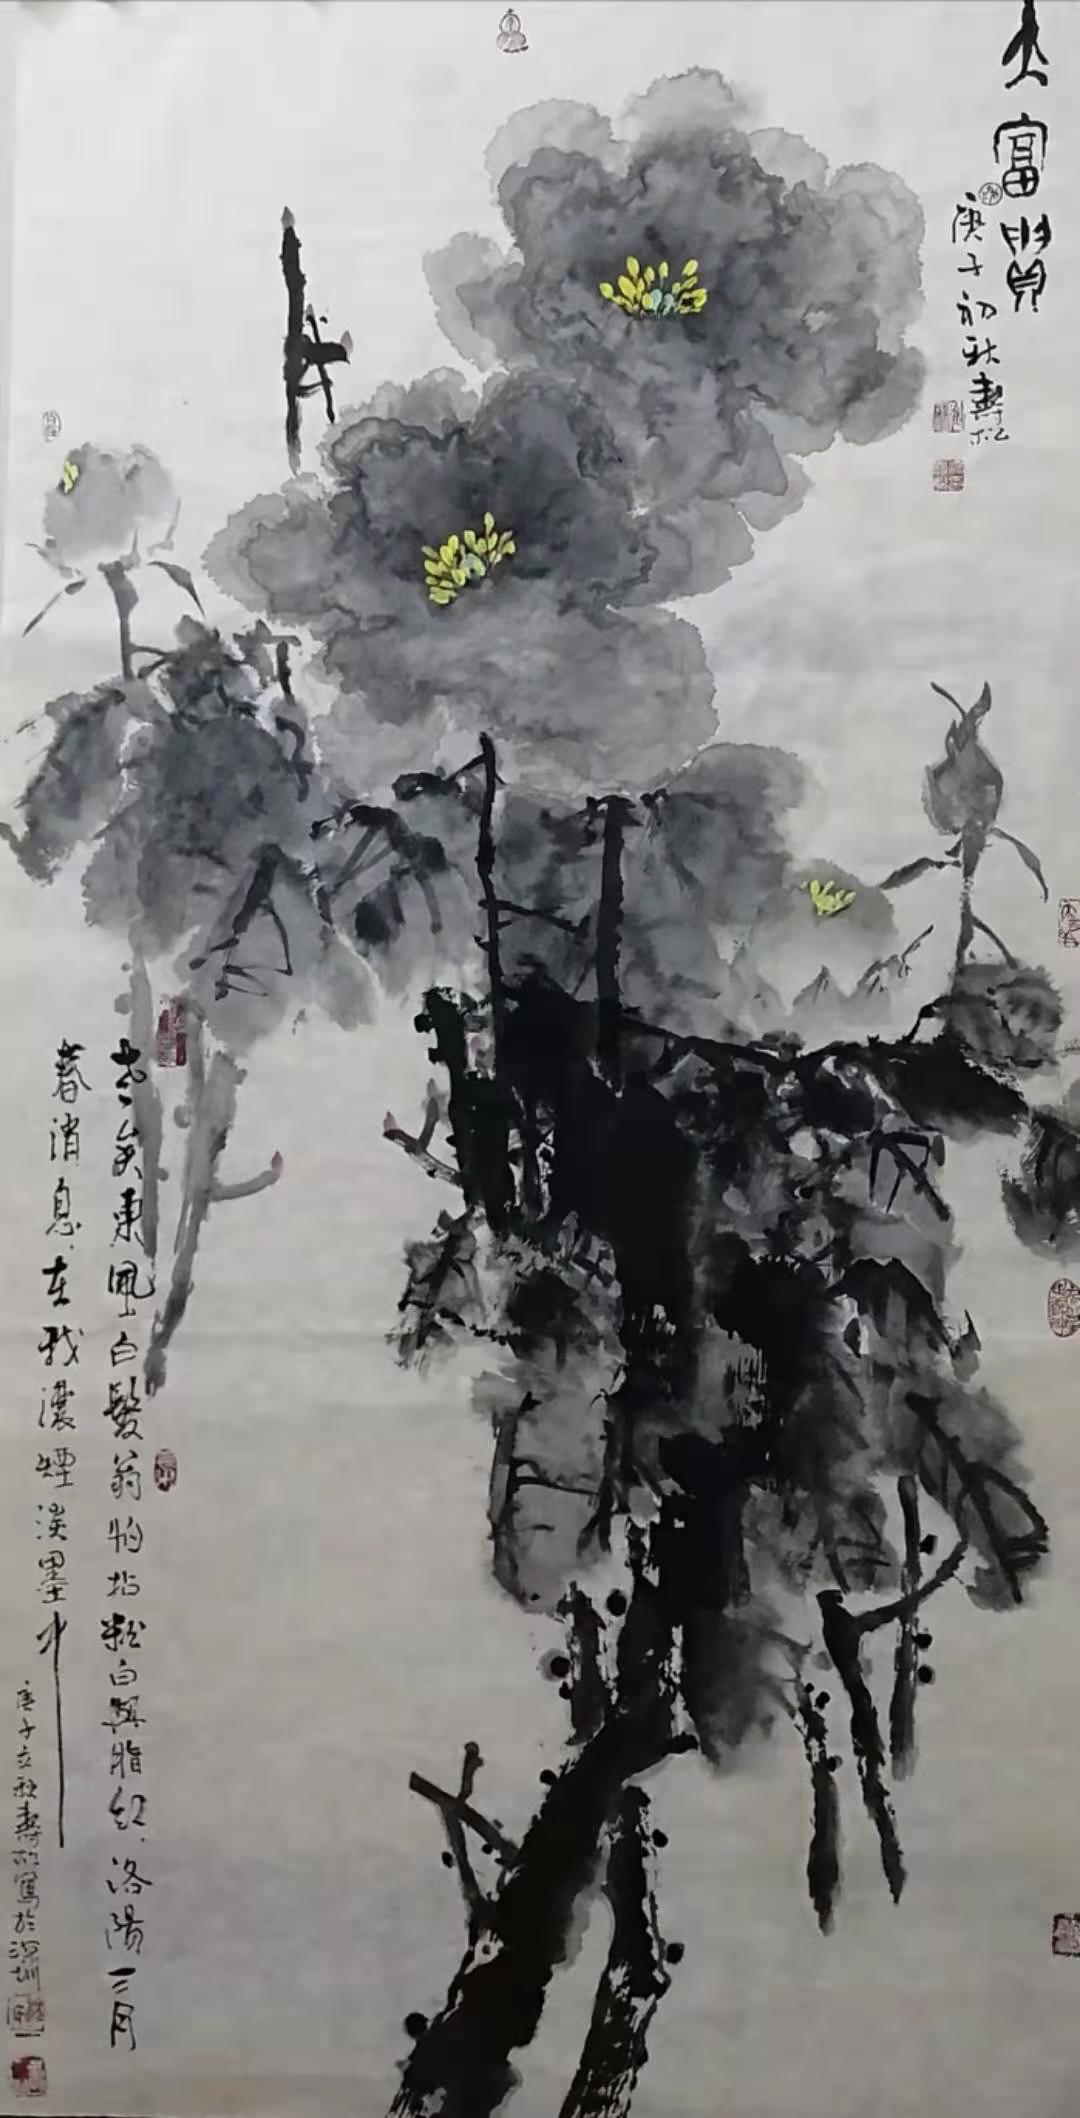 大富貴
庚子初秋壽松
老矣東風白髮翁怕拈粉白與脂紅洛陽三月
春消息在我濃煙淡墨中
庚子立秋壽松寫於深圳